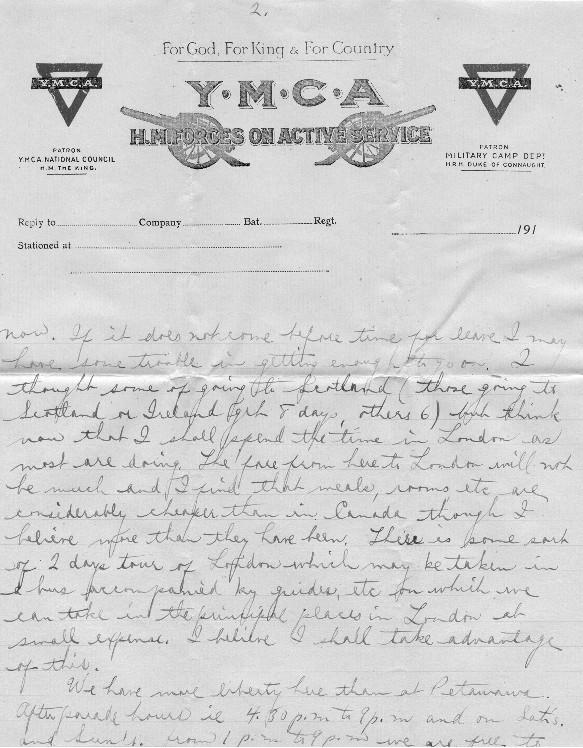 2.
For God, For King & For Country
Y.M.C.A.
Y.M.C.A
Y.M.C.A.
H.M. FORCES ON ACTIVE SERVICE
PATRON
Y.M.C.A. NATIONAL COUNCIL
H.M. THE KING.
PATRON
MILITARY CAMP DEPT
H.R.H. DUKE OF CONNAUGHT.
Reply to Company Bat. Regt.
191
Stationed at
now. If it does not come before time for leave I may
have some trouble in getting enough to go on. I
thought some of going to Scotland (those going to
Scotland or Ireland get 8 days, others 6) but think
now that I shall spend the time in London as
most are doing. The fare from here to London will not
be much and I find that meals, rooms etc are
considerably cheaper than in Canada though I
believe more than they have been. There is some sort
of 2 days tour of London which may be taken in
a bus accompanied by guides, etc on which we
can take in the principal places in London at
small expense. I believe I shall take advantage
of this.
We have more liberty here than at Petawawa.
After parade hours ie 4.30 p.m to 9 p.m and on Sat's.
and Sun's. from 1 p.m to 9 p.m we are free to